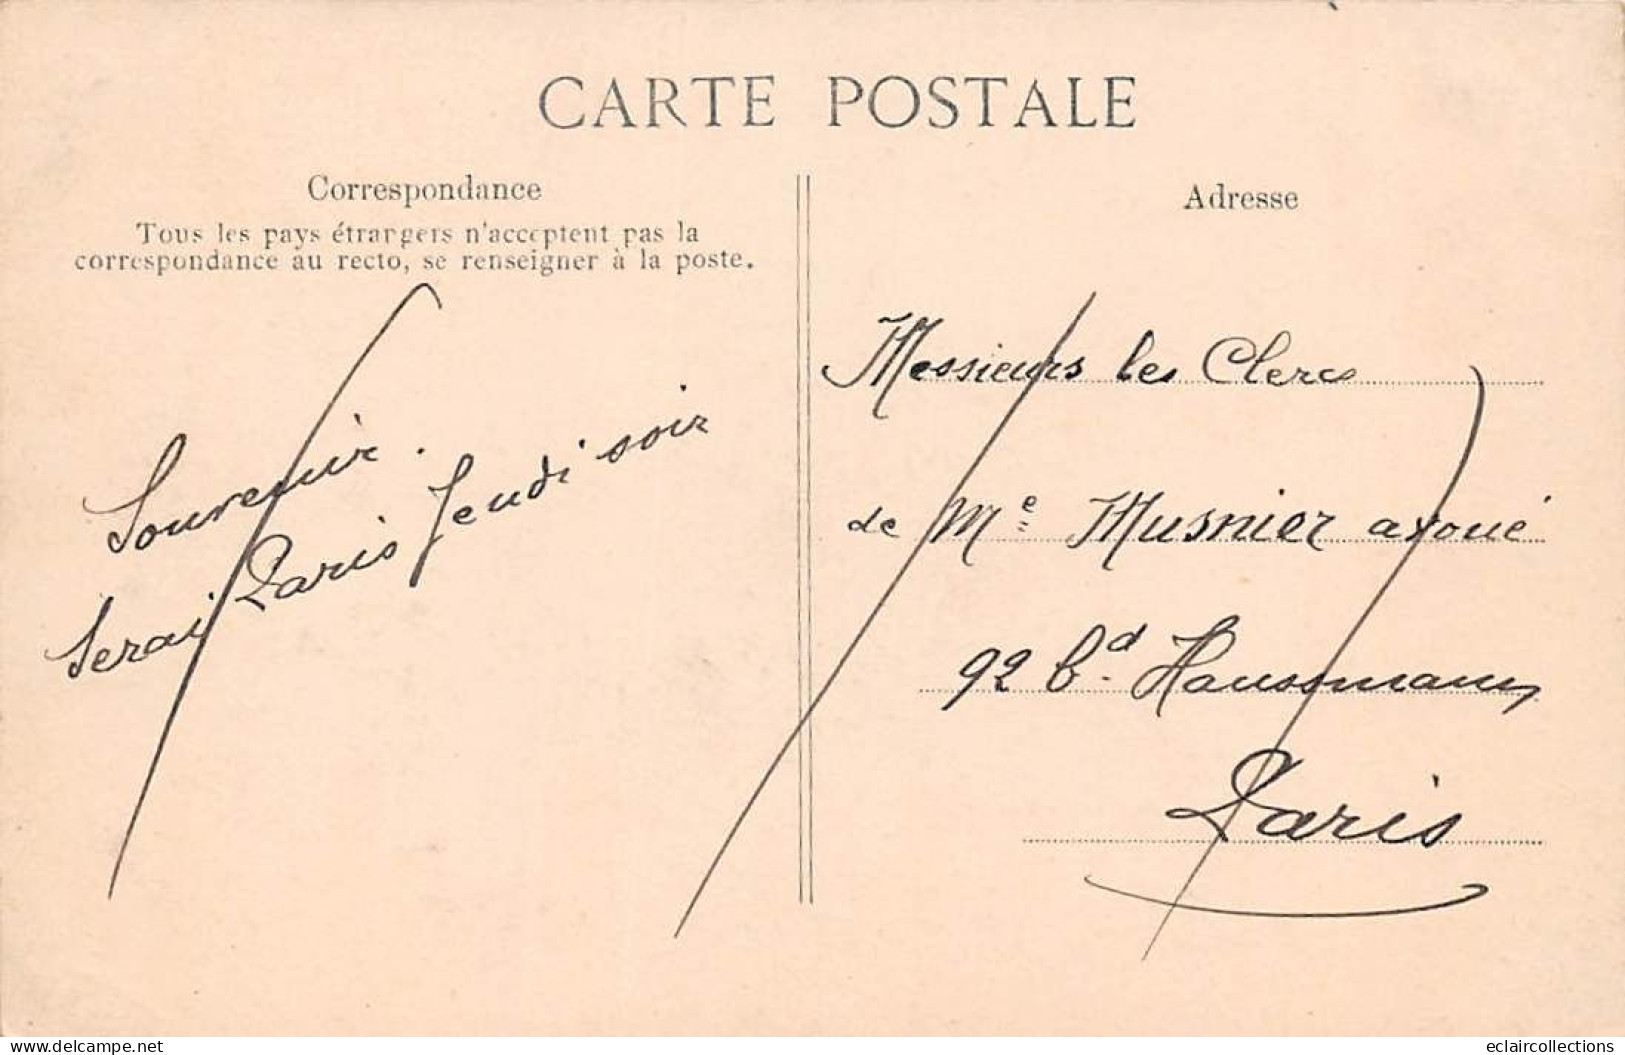 CARTE POSTALE
Correspondance
Tous les pays étrangers n'acceptent pas la
correspondance au recto, se renseigner à la poste.
Souvenir.
Serai Paris Jeudi soir
Adresse
Messieurs les Clercs
de Me Musnier avoué
92 bd. Haussmann
Paris
www.delcampe.net
eclaircollections